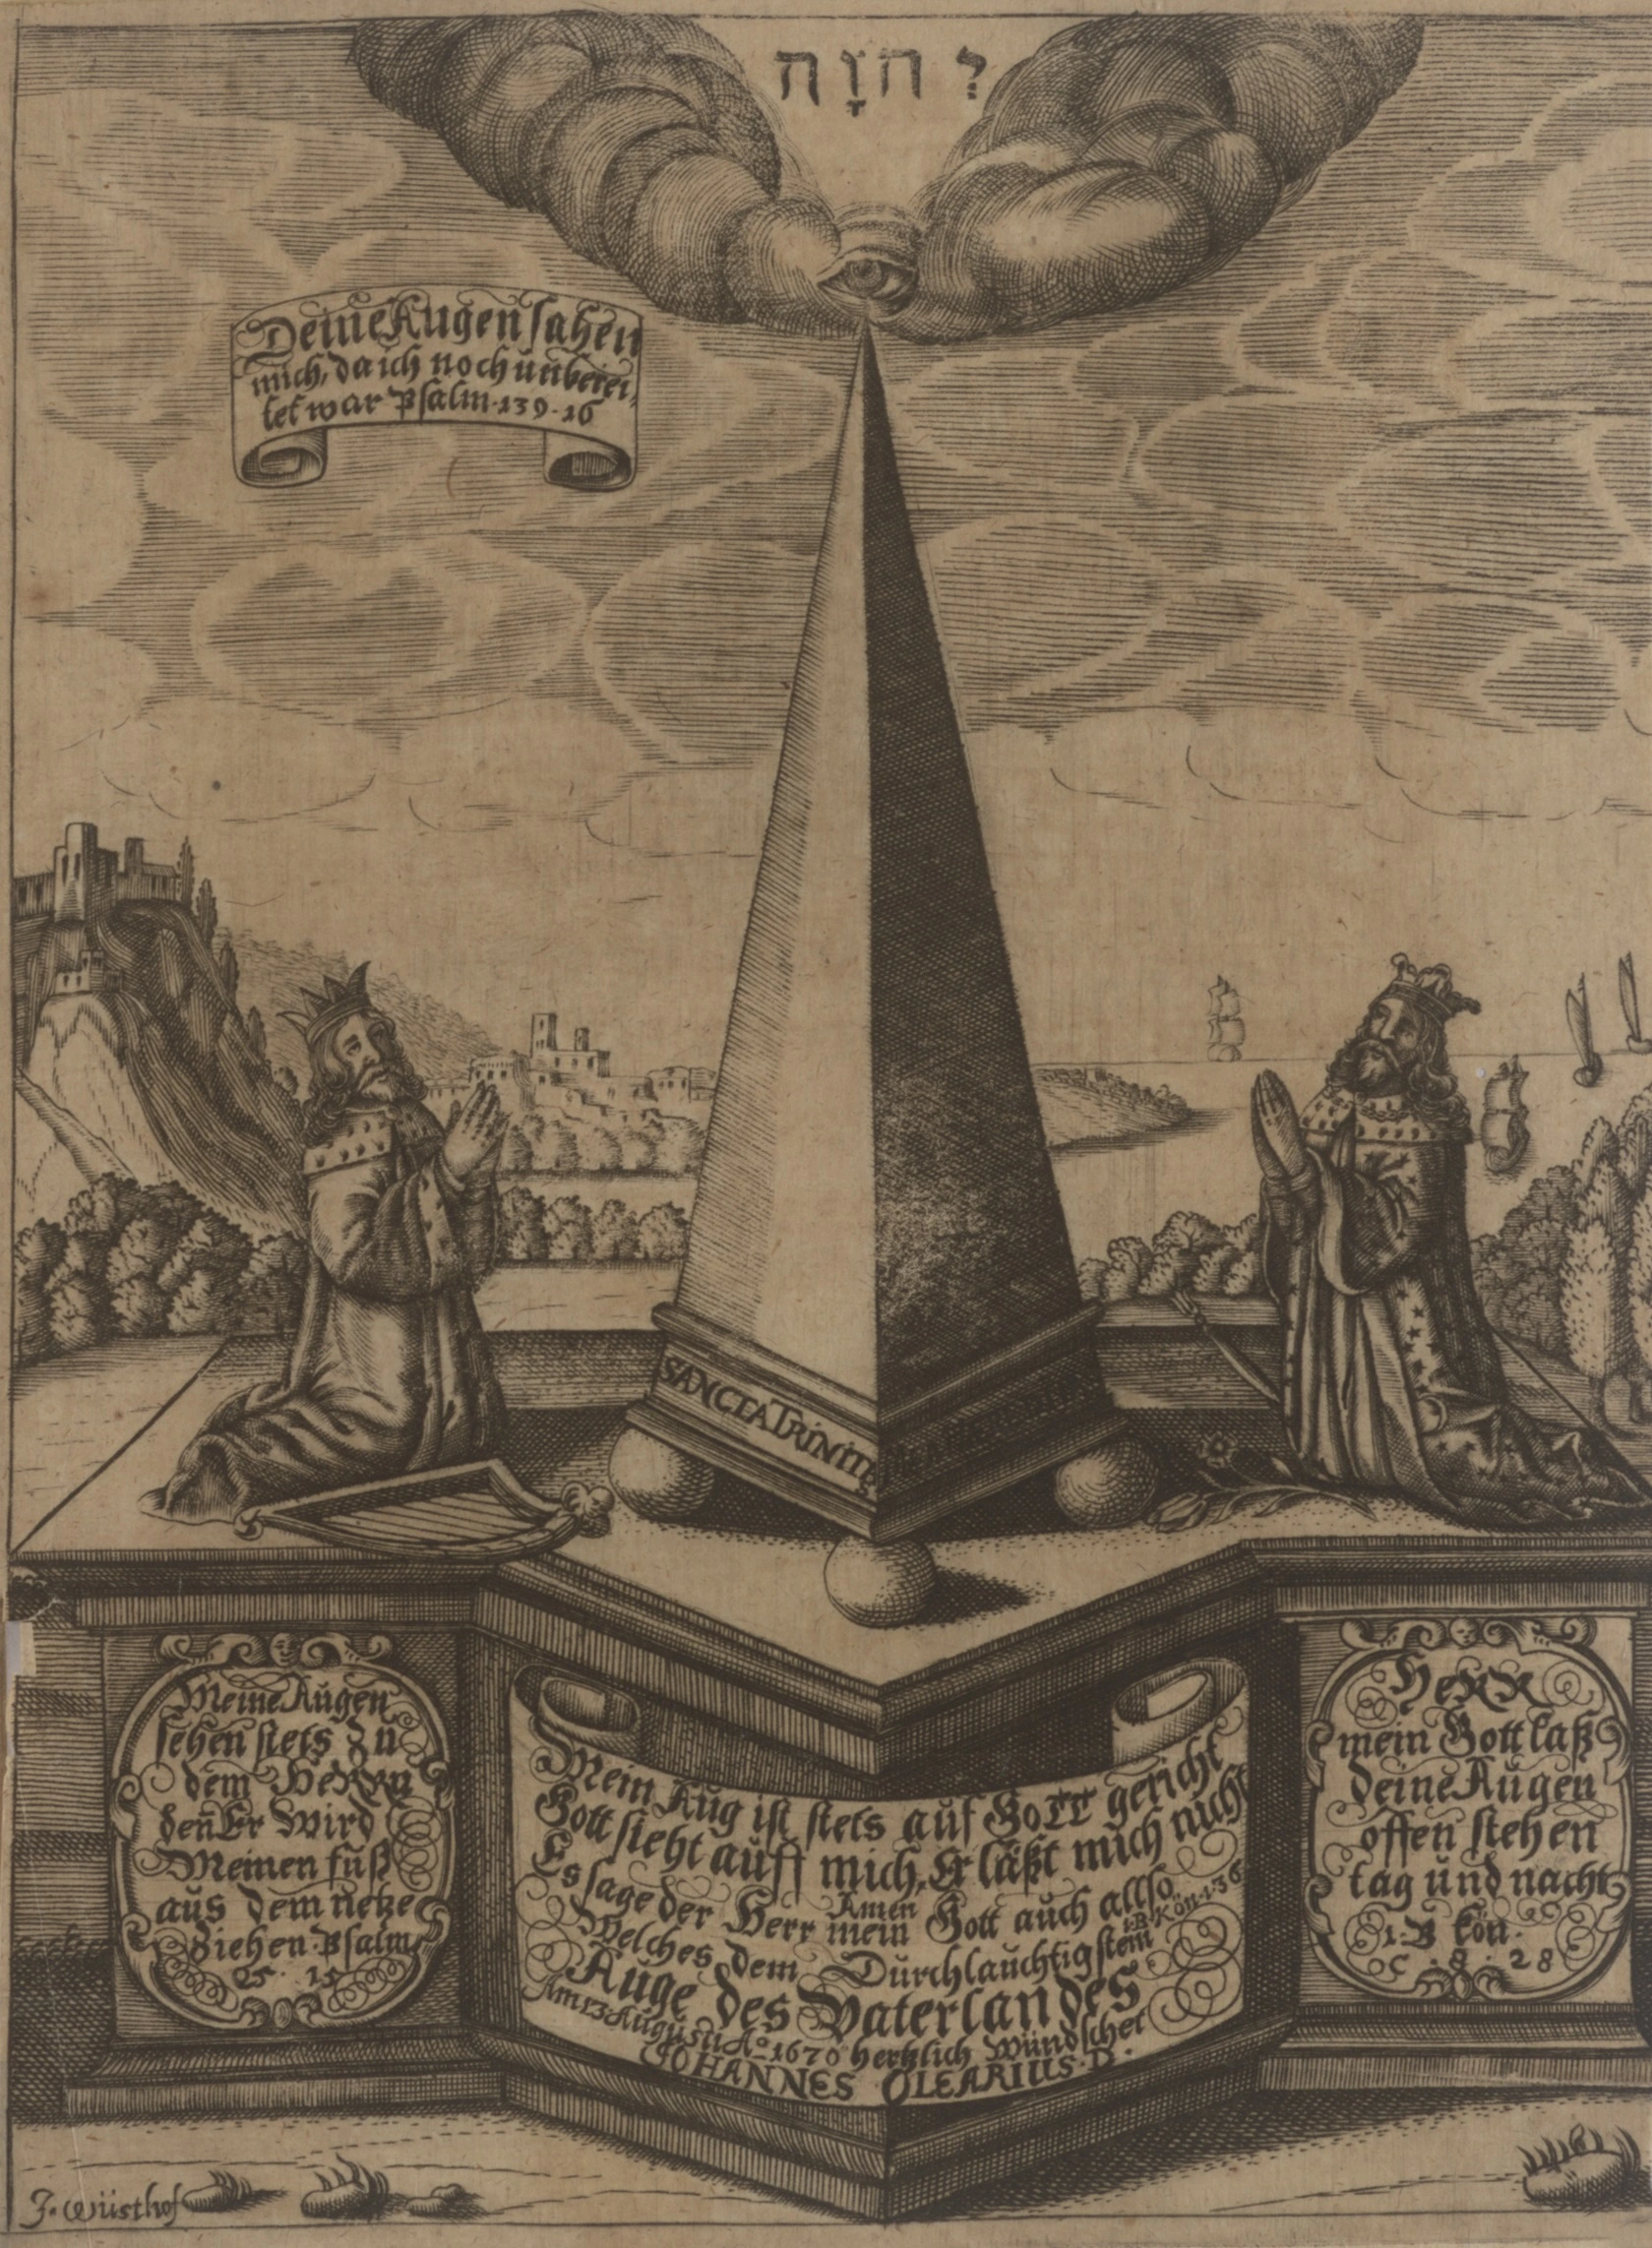 יְהוָֹה
Deine Augen sahen
mich, da ich noch unberei,
tet war Psalm·139·16
SANCTA TRINITS
Meine Augen
sehen stets zu
dem HeRRn
deñ Er Wird
Meinen fuß
aus dem netze
Ziehen·Psalm
25·15
Mein Aug ist stets auf GOTT gericht
Gott sieht auff mich, Er läßt mich nicht
Amen
Es sage der Herr mein Gott auch allso 1·B·Kön·1·36
Welches dem Durchlauchtigstem
Auge des Vaterlandes
Am 13 Augusti Aº 1670 hertzlich Wündschet
JOHANNES OLEARIUS·D·
HeRR
mein Gott laß
deine Augen
offen stehen
tag und nacht
1·B Kön·
C·8·28
J·Wüsthof